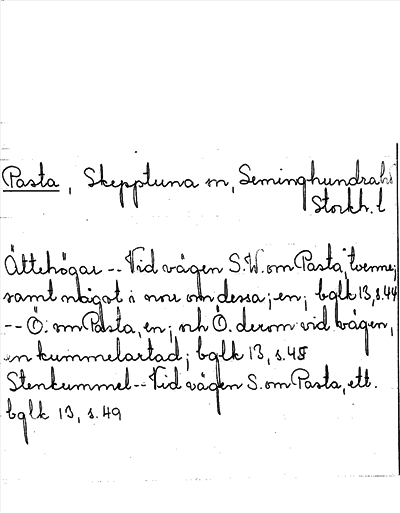 Pasta, Skepptuna sn, Seminghundrahd
Stockh. l
Ättehögar -- Vid vägen S.W. om Pasta, tvenne;
samt något i norr om dessa; en; bglk 13, s. 44
-- Ö. om Pasta, en; och Ö. derom vid vägen,
en kummelartad; bglk 13, s. 48
Stenkummel -- Vid vägen S. om Pasta, ett.
bglk 13, s. 49